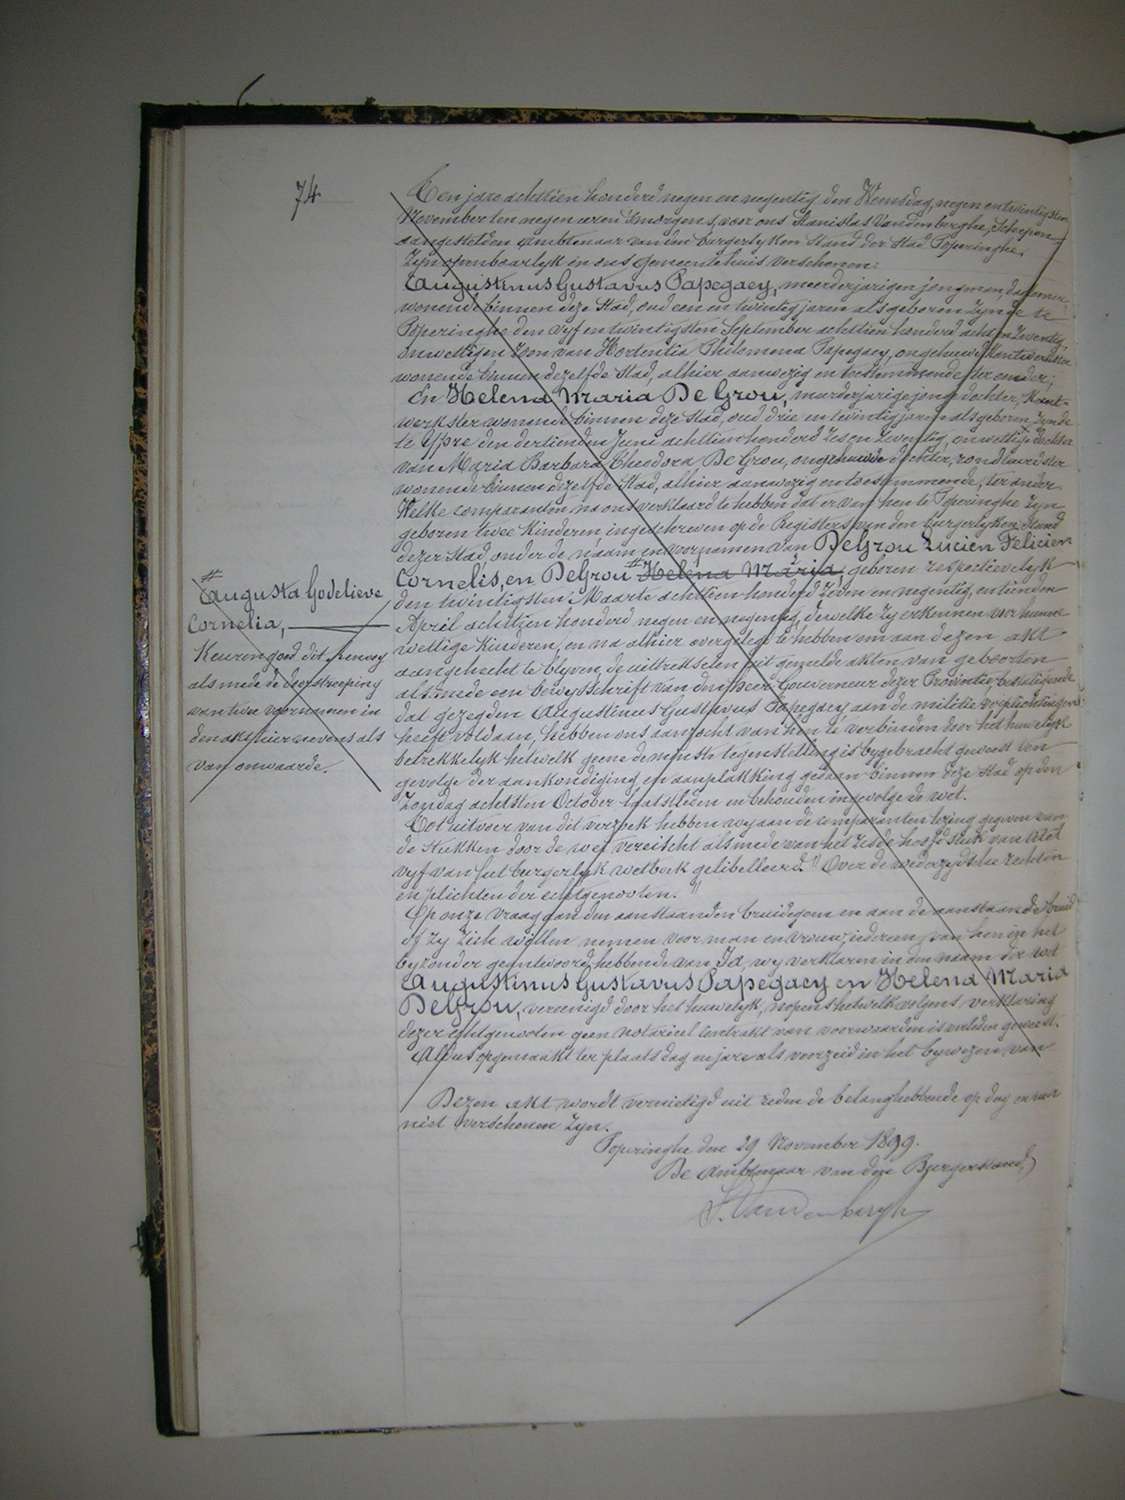 74
Ten jare achttien honderd negen en negentig, den Wensdag, negen entwintigsten
November ten negen uren 's morgens, voor ons Stanislas Vandenberghe, Schepen
aangestelden ambtenaar van den burgerlyken Stand der Stad Poperinghe,
Zyn openbaarlyk in ons Gemeentehuis verschenen:
Augustinus Gustavus Papegaey, meerderjarigen jongman,
wonende binnen deze Stad, oud een en twintig jaren als geboren Zynde te
Poperinghe den vyf en twintigsten September achttien honderd acht en Zeventig,
onwettigen Zoon van Hortentia Philomena Papegaey, ongehuwd, kantwerkster
wonende binnen dezelfde Stad, alhier aanwezig en toestemmende ter eender;
En Helena Maria De Grou, meerderjarige jonge dochter, Kant-
werkster wonende binnen deze Stad, oud drie en twintig jaren als geboren Zynde
te Ypre den dertienden Juni achttien honderd Zes en Zeventig, onwettige dochter
van Maria Barbara Theodora De Grou, ongehuwde dochter,
wonende binnen dezelfde Stad, alhier aanwezig en toestemmende, ter ander
Welke comparanten na ons verklaard te hebben dat er van hen te Poperinghe Zyn
geboren twee Kinderen ingeschreven op de Registers van den burgerlyken Stand
dezer Stad, onder de naam en voornamen van DeGrou Lucien Felicien
Cornelis, en DeGrou # Helena Maria, geboren respectievelyk
den twintigsten Maarte achttien honderd Zeven en negentig, en tienden
April achttien honderd negen en negentig, dewelke Zy erkennen voor hunne
wettige Kinderen, en na alhier overgelegd te hebben om aan dezen akt
aangehecht te blyven, de uittrekselen uit gemelde akten van geboorten
alsmede een bewysschrift van den Heer Gouverneur dezer Provintie, bestatigende
dat gezegden Augustinus Gustavus Papegaey aan de militie verplichtingen
heeft voldaan, hebben ons aanzocht van hen te verbinden door het huwelyk
betrekkelyk hetwelk geene de minste tegenstelling is bygebracht geweest ten
gevolge der aankondiging en aanplakking gedaan binnen deze Stad op den
Zondag achtsten October laatstleden en behouden ingevolge de wet.
Tot uitvoer van dit verzoek hebben wy aan de comparanten lezing gegeven van
de stukken door de wet vereischt alsmede van het Zesde hoofdstuk van titel
vyf van het burgerlyk wetboek gelibelleerd: "Over de wederzydsche rechten
en plichten der echtgenooten."
Op onze vraag aan den aanstaanden bruidegom en aan de aanstaande bruid
of zy Zich willen nemen voor man en vrouw, iedereen van hen in het
byzonder geantwoord hebbende van Ja, wy verklaren in den naam der wet
Augustinus Gustavus Papegaey en Helena Maria
DeGrou, vereenigd door het huwelyk, nopens hetwelk volgens verklaring
dezer echtgenooten geen notarieel contrakt van voorwaarden is verleden geweest.
Aldus opgemaakt ter plaats dag en jare als voorzeid in het bywezen van
Dezen akt wordt vernietigd uit reden de belanghebbende op dag en uur
niet verschenen Zyn.
Poperinghe den 29 November 1899.
De Ambtenaar van deze Burgerstand,
S. Vandenberghe
#
Augusta Godelieve
Cornelia,
Keuren goed dit renvooy
alsmede de doorstreeping
van twee voornamen in
den akt hier nevens als
van onwaarde.